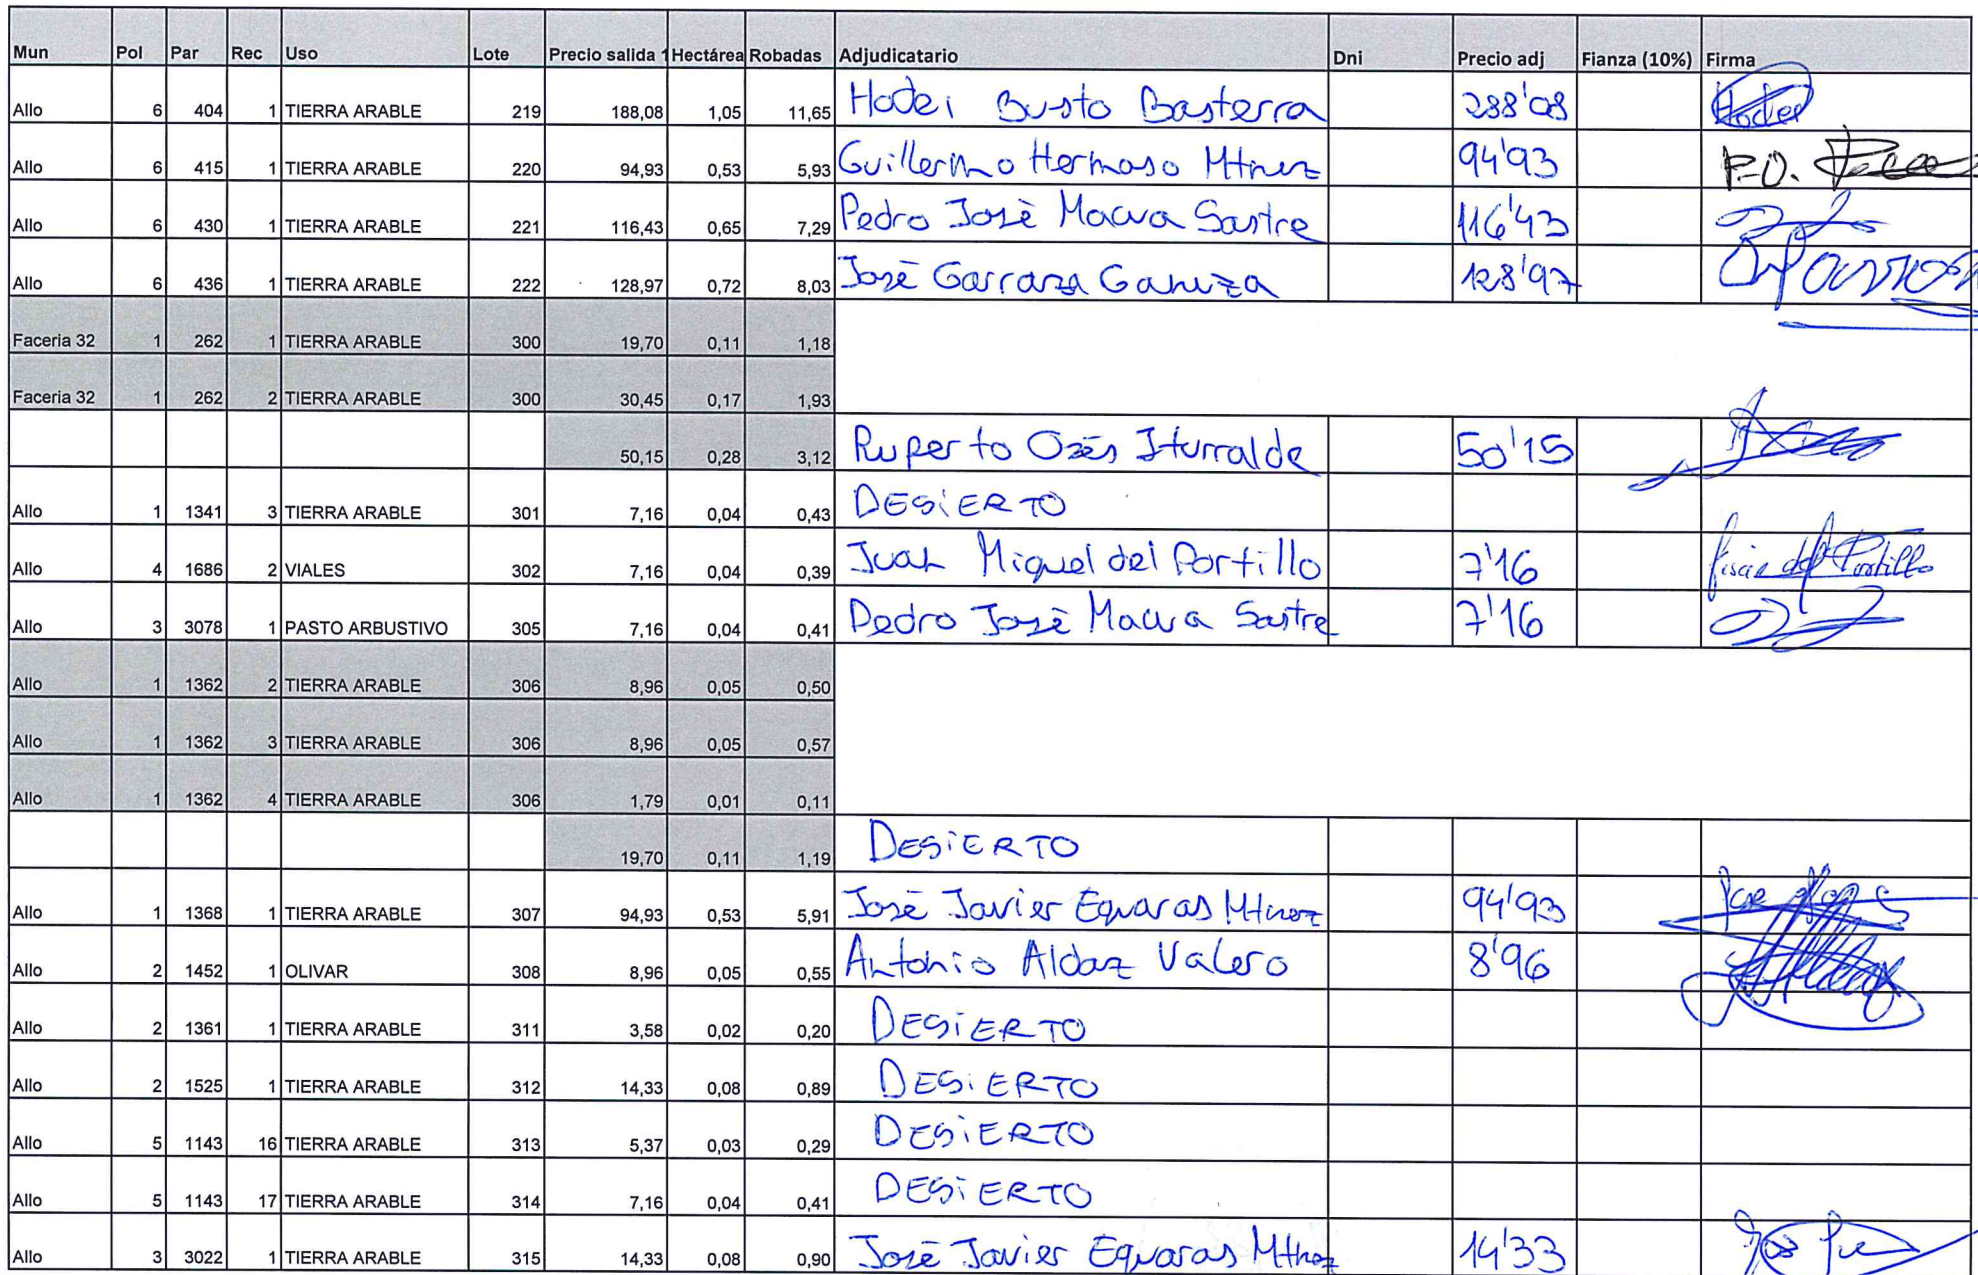 Mun Pol Par Rec Uso Lote Precio salida 1 Hectárea Robadas Adjudicatario Dni Precio adj Fianza (10%) Firma
Allo 6 404 1 TIERRA ARABLE 219 188,08 1,05 11,65 Hodei Busto Basterra 288'08 Hodei
Allo 6 415 1 TIERRA ARABLE 220 94,93 0,53 5,93 Guillermo Hermoso Mtnez 94'93 P.O.
Allo 6 430 1 TIERRA ARABLE 221 116,43 0,65 7,29 Pedro José Macua Sastre 116'43
Allo 6 436 1 TIERRA ARABLE 222 128,97 0,72 8,03 José Garraza Ganuza 128'97
Faceria 32 1 262 1 TIERRA ARABLE 300 19,70 0,11 1,18
Faceria 32 1 262 2 TIERRA ARABLE 300 30,45 0,17 1,93
50,15 0,28 3,12 Ruperto Ozés Iturralde 50'15
Allo 1 1341 3 TIERRA ARABLE 301 7,16 0,04 0,43 DESiERTO
Allo 4 1686 2 VIALES 302 7,16 0,04 0,39 Juan Miguel del Portillo 7'16 del Portillo
Allo 3 3078 1 PASTO ARBUSTIVO 305 7,16 0,04 0,41 Pedro José Macua Sastre 7'16
Allo 1 1362 2 TIERRA ARABLE 306 8,96 0,05 0,50
Allo 1 1362 3 TIERRA ARABLE 306 8,96 0,05 0,57
Allo 1 1362 4 TIERRA ARABLE 306 1,79 0,01 0,11
19,70 0,11 1,19 DESiERTO
Allo 1 1368 1 TIERRA ARABLE 307 94,93 0,53 5,91 José Javier Eguaras Mtnez 94'93
Allo 2 1452 1 OLIVAR 308 8,96 0,05 0,55 Antonio Aldaz Valero 8'96
Allo 2 1361 1 TIERRA ARABLE 311 3,58 0,02 0,20 DESiERTO
Allo 2 1525 1 TIERRA ARABLE 312 14,33 0,08 0,89 DESiERTO
Allo 5 1143 16 TIERRA ARABLE 313 5,37 0,03 0,29 DESiERTO
Allo 5 1143 17 TIERRA ARABLE 314 7,16 0,04 0,41 DESiERTO
Allo 3 3022 1 TIERRA ARABLE 315 14,33 0,08 0,90 José Javier Eguaras Mtnez 14'33